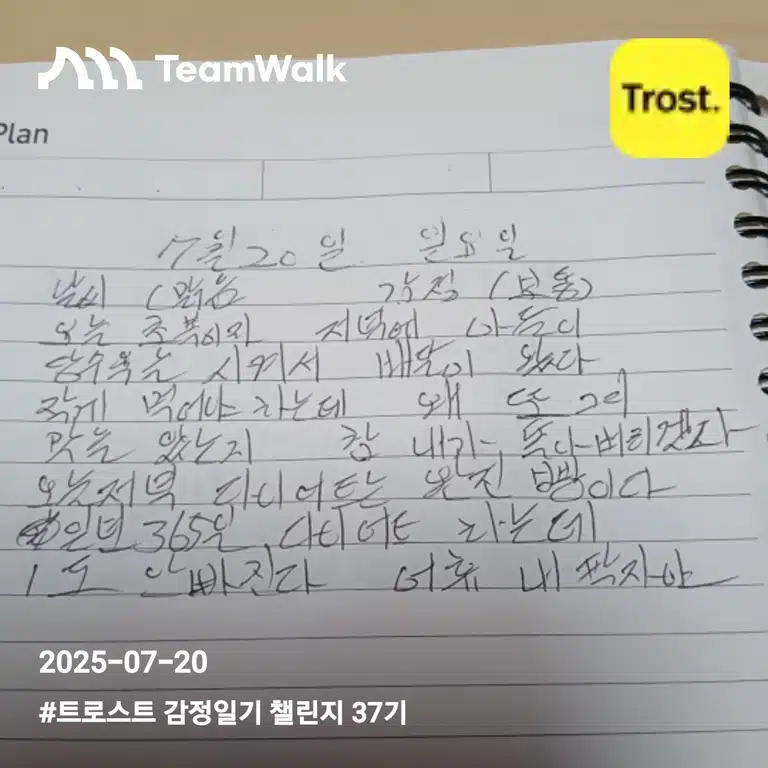 TeamWalk
Trost.
Plan
7월 20일 일요일
날씨 (맑음 감정 (보통)
오늘 초복이자 저녁에 아들이
탕수육을 시켜서 배달이 왔다
작게 먹어야 하는데 왜 또
맛는 있는지 참 내가 돌아버리겠다
오늘저녁 다이어트는 완전 빵이다
일년 365일 다이어트 하는데
1도 안빠진다 어휴 내 팔자야
2025-07-20
#트로스트 감정일기 챌린지 37기